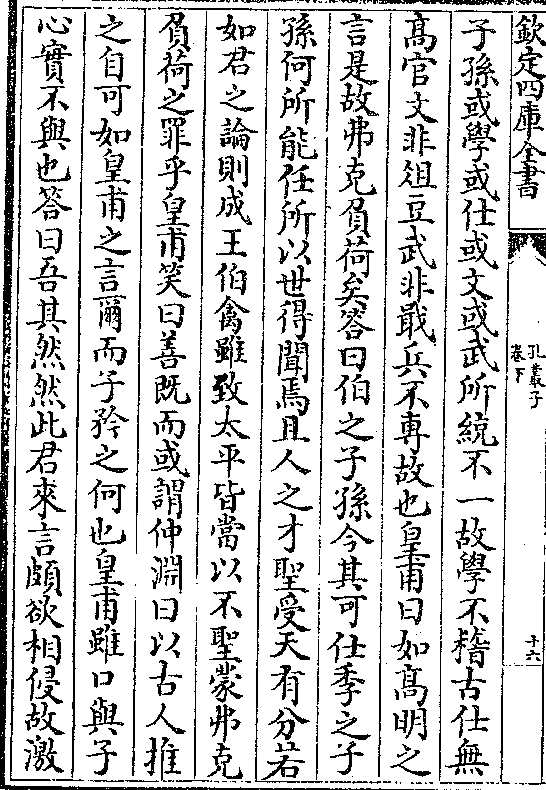 欽定四庫全書
孔叢子
卷下
十六
子孫或學或仕或文或武所統不一故學不稽古仕無
髙官文非俎豆武非戢兵不專故也皇甫曰如髙明之
言是故弗克負荷矣答曰伯之子孫今其可仕季之子
孫何所能任所以世得聞焉且人之才聖受天有分若
如君之論則成王伯禽雖致太平皆當以不聖蒙弗克
負荷之罪乎皇甫笑曰善既而或謂仲淵曰以古人推
之自可如皇甫之言爾而子矜之何也皇甫雖口與子
心實不與也答曰吾其然然此君來言頗欲相侵故激